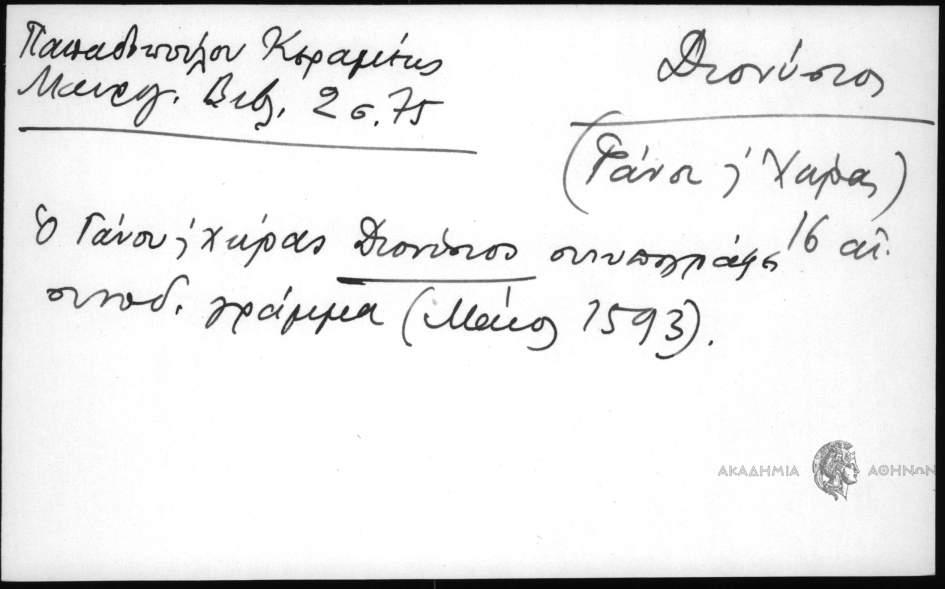 Παπαδοπούλου Κεραμέως
Μαυρογ. Βιβ. 2 σ. 75
Διονύσιος
(Γάνου ἡ Χώρας)
16 αἰ.
Ὁ Γάνου ἡ Χώρας Διονύσιος συνυπογράφει
συνοδ. γράμμα (Μάιος 1593).
ΑΚΑΔΗΜΙΑ ΑΘΗΝΩΝ